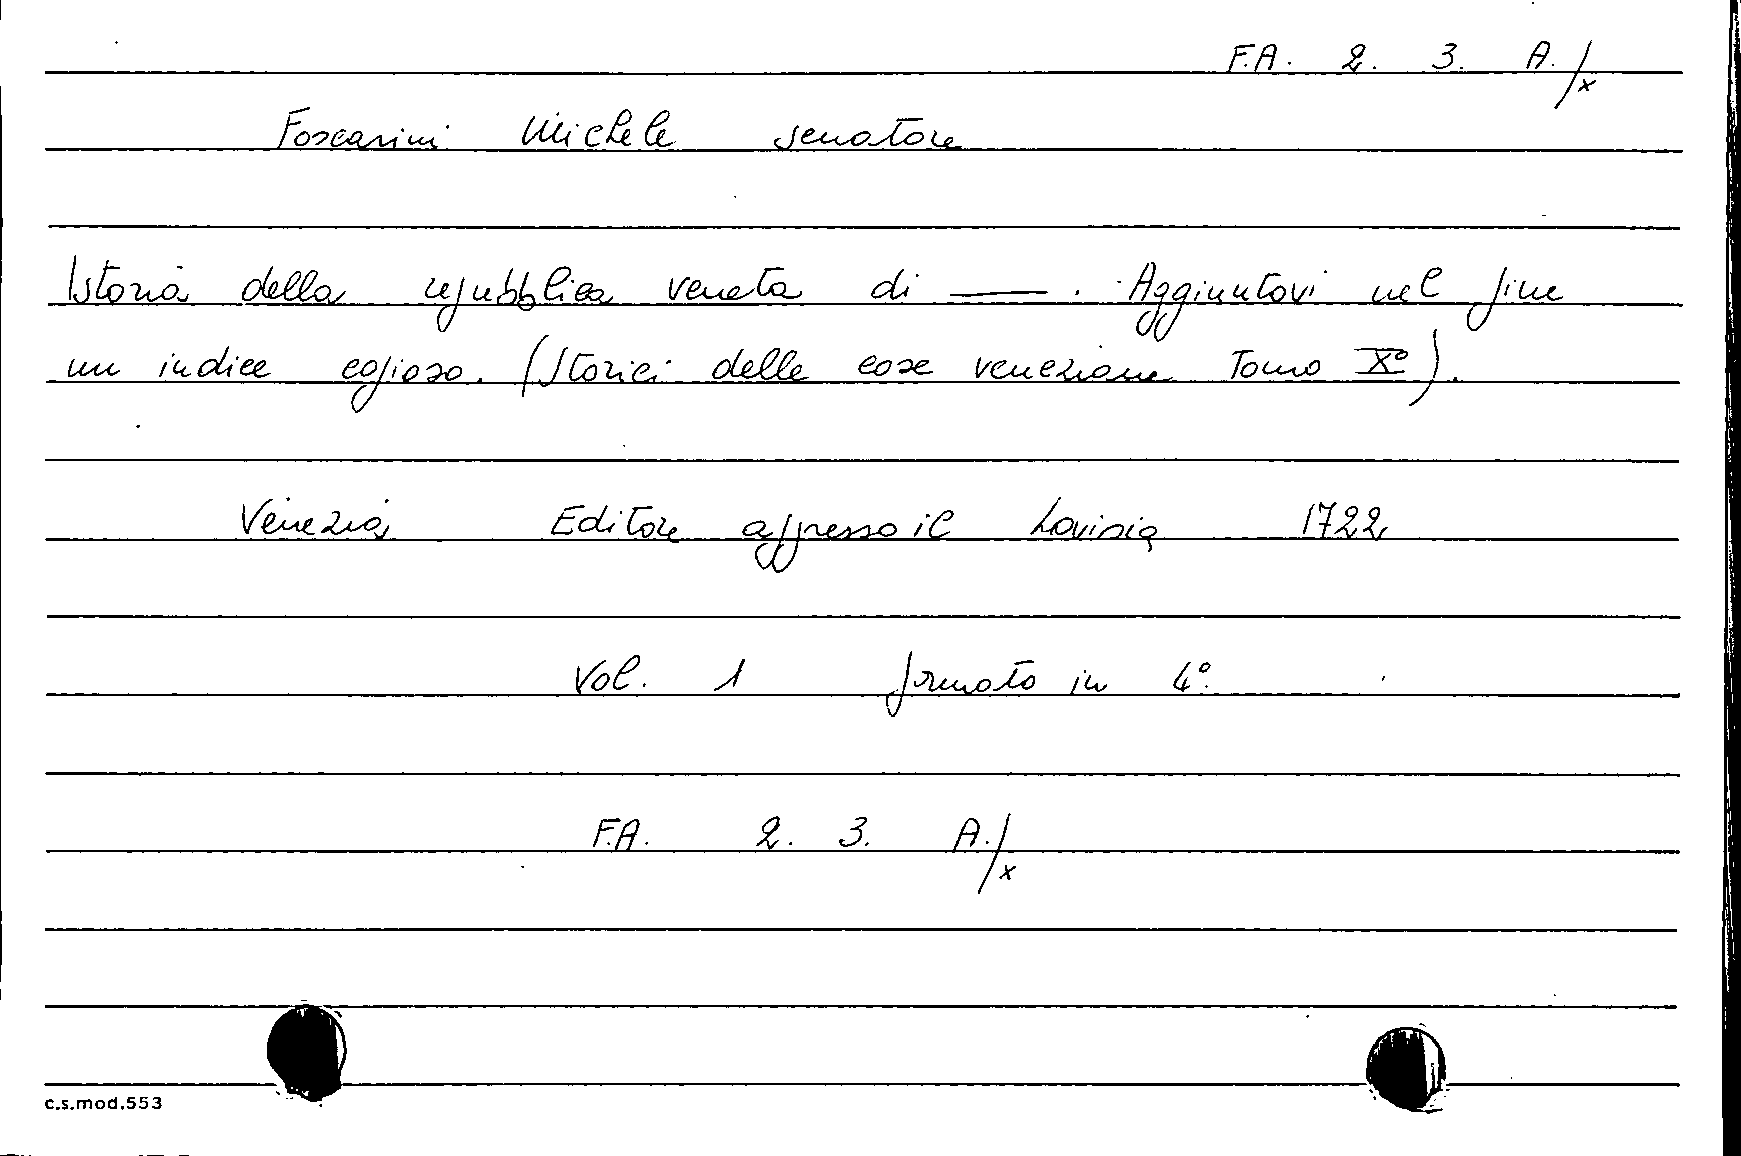 F.A. 2. 3. A./x
Foscarini Michele senatore
Istoria della repubblica veneta di —— . Aggiuntovi nel fine
un indice copioso. (Storici delle cose veneziane Tomo X°).
Venezia Editore appresso il Lovisia 1722
Vol. 1 formato in 4°.
F.A. 2. 3. A./x
c.s.mod.553